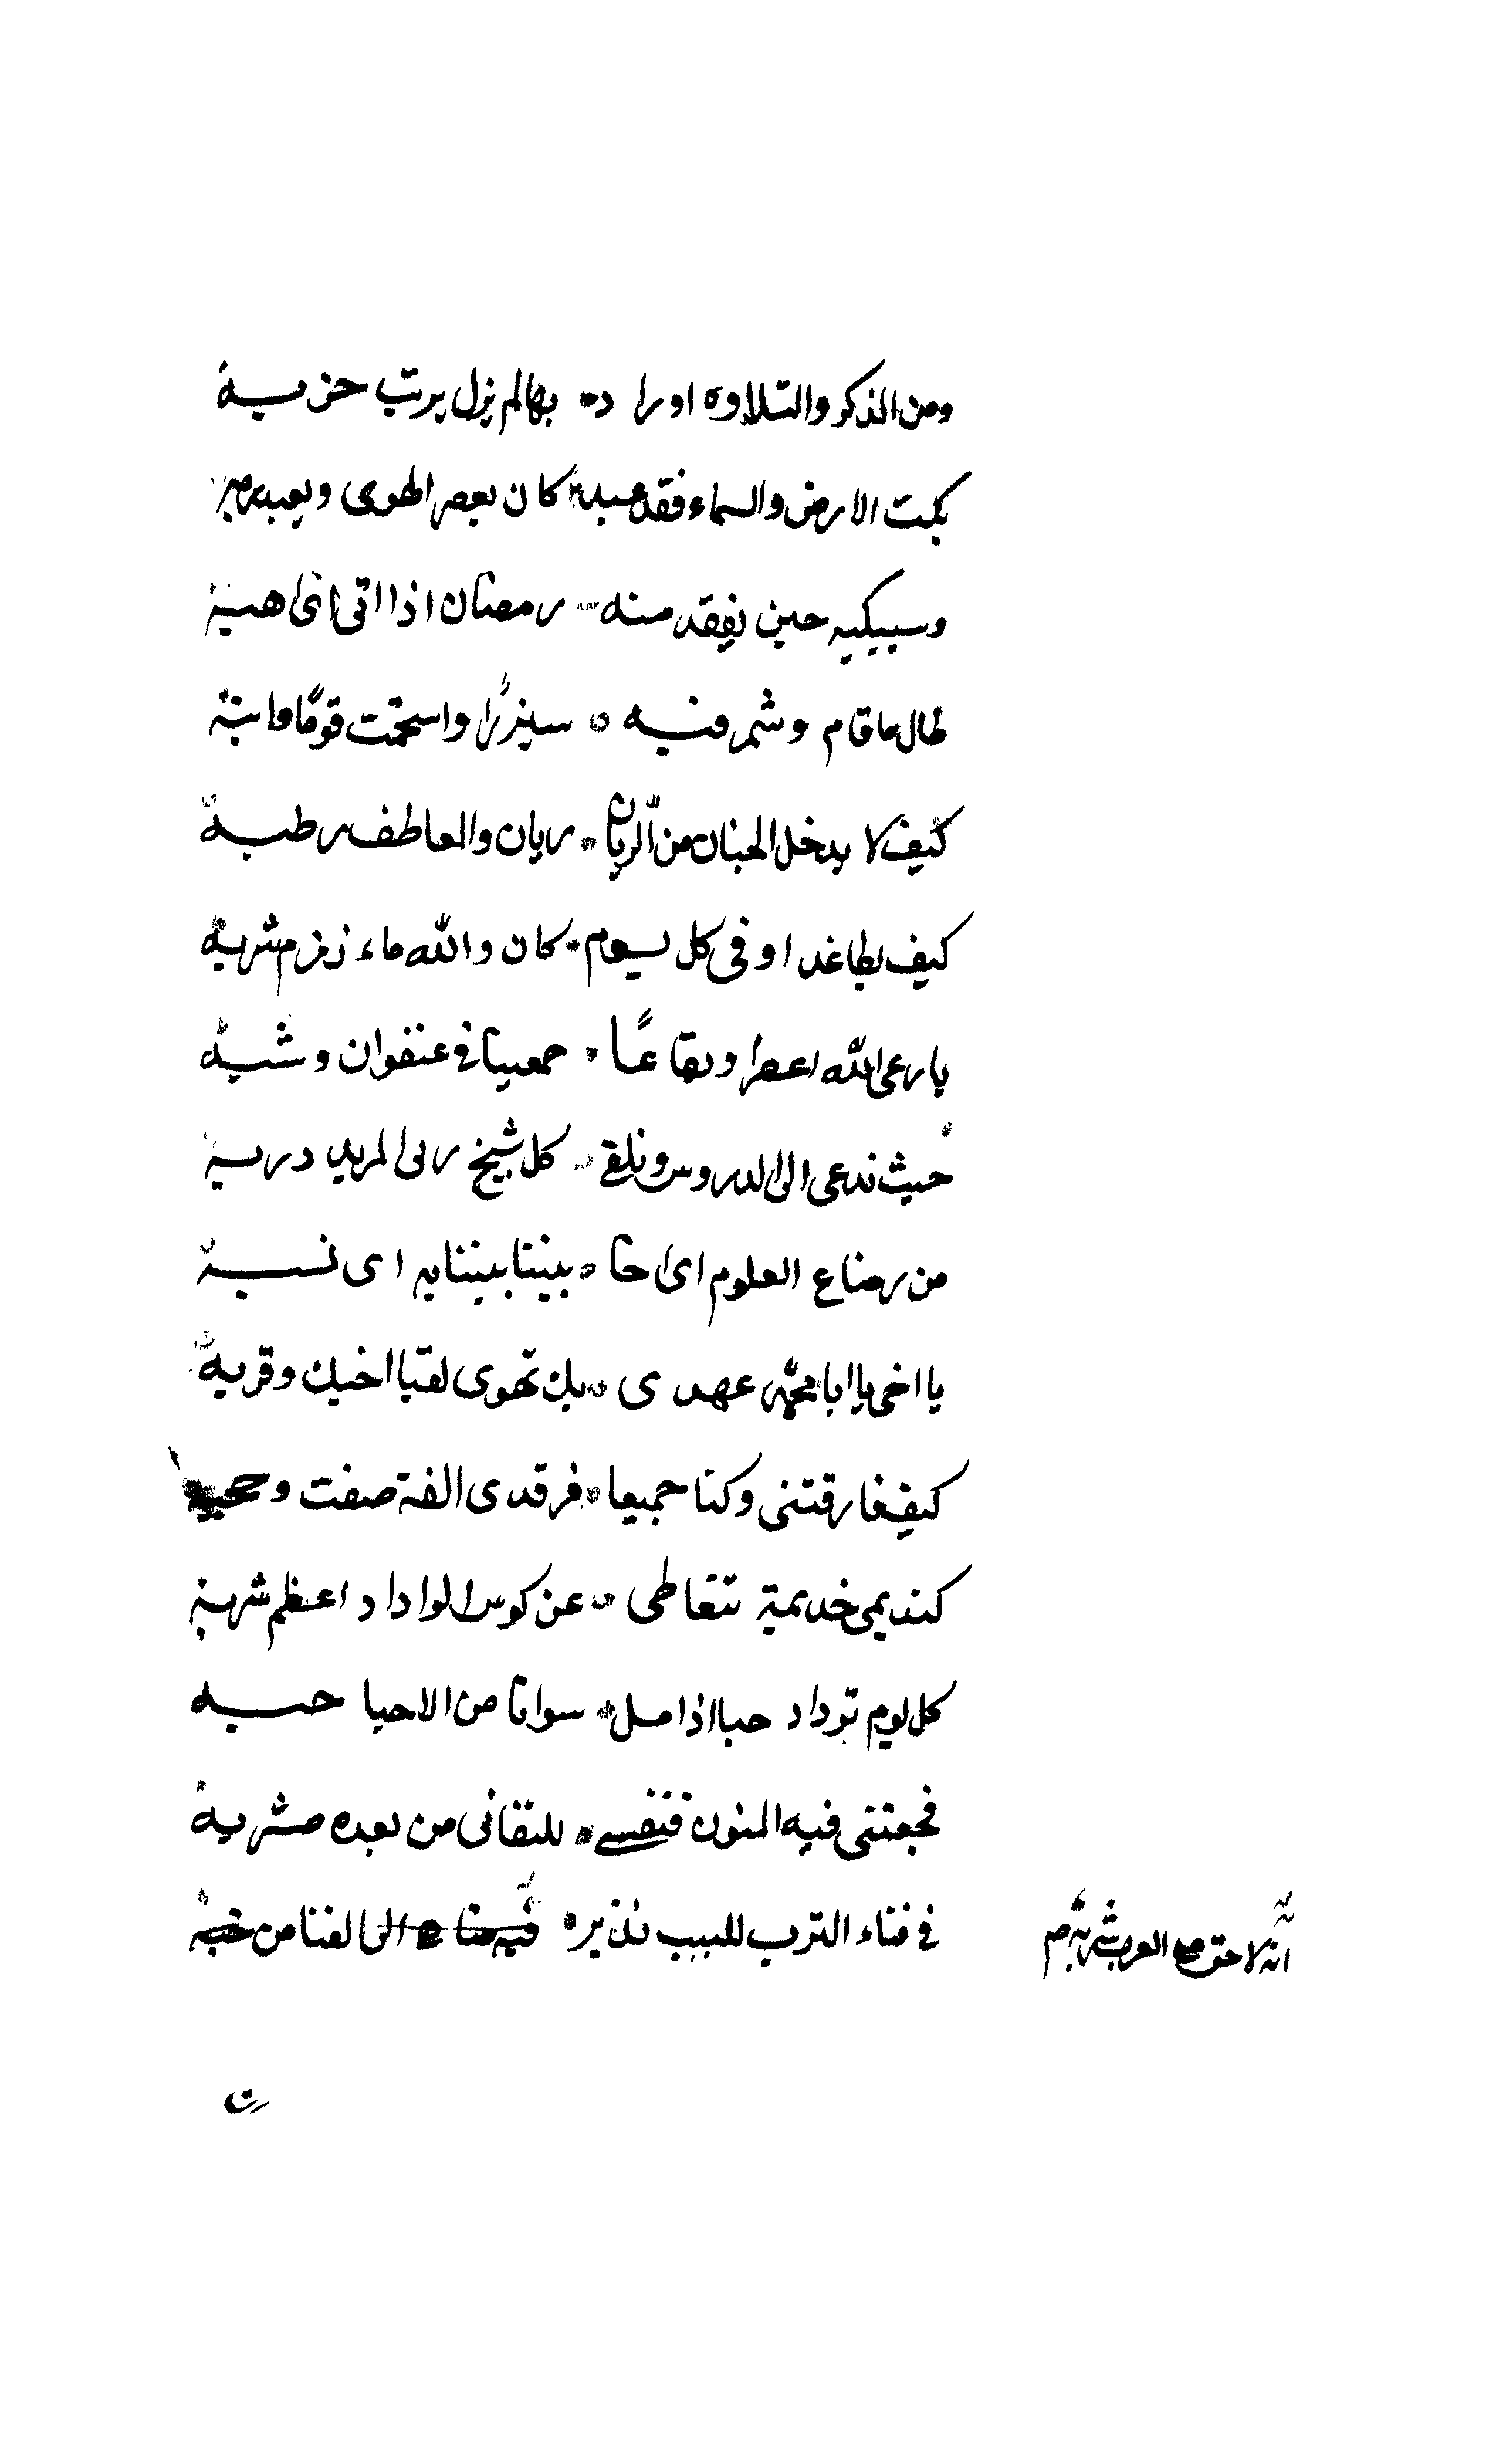 ومن الذكر والتلاوة اورا د بها لم يزل يرتب حزبه
بكت الارض والسماء فقد عبد كان يعصى الهوى ويعبد ربه
وسيبكيه حين يفقد منه رمضان اذا اتى
طال ما قام وشمر فيه
كيف لا يدخل الجنان من الريان ريان والعاطف رطبه
كيف يظا غدا وفى كل يوم كان والله ماء زمزم شربه
يا رعى الله اعصرا وبقاعا جمعتنا فى عنفوان وشبه
حيث ندعى الى الدروس ونلقى كل شيخ ربى المريد دربه
من رضاع العلوم اى اخا بيننا بيننا به اى نسبه
يا اخى يا ابا محمد عهدى بك تهوى لقيا اخيك وقربه
كيف فارقتنى وكنا جميعا فرقدى الفة صفت ومحبه
كنديمى خديمة نتعاطى من كوس الوداد اعظم شربه
كل يوم تزداد حبا اذا مل سوانا من الاحبا حبه
فجعتنى فيه المنون فنفسى للتفانى من بعده مشربه
فى فناء الترب للبيب نذير الى الفنا من
انه لاحق